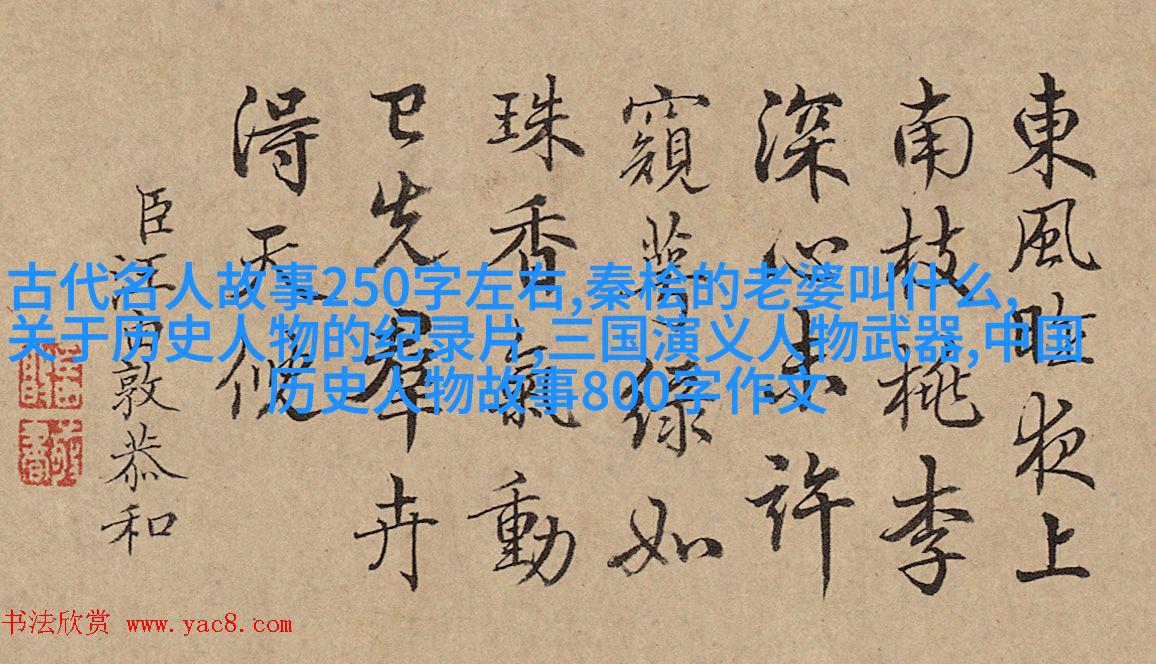 東風昨夜上
南枝桃李
深心未許
窺萼綠如
珠香氣動
已先羣卉
得天
臣汪由敦恭和
古代名人故事250字左右,秦桧的老婆叫什么,
关于历史人物的纪录片,三国演义人物武器,中国
历史人物故事800字作文
书法欣赏 www.yac8.com